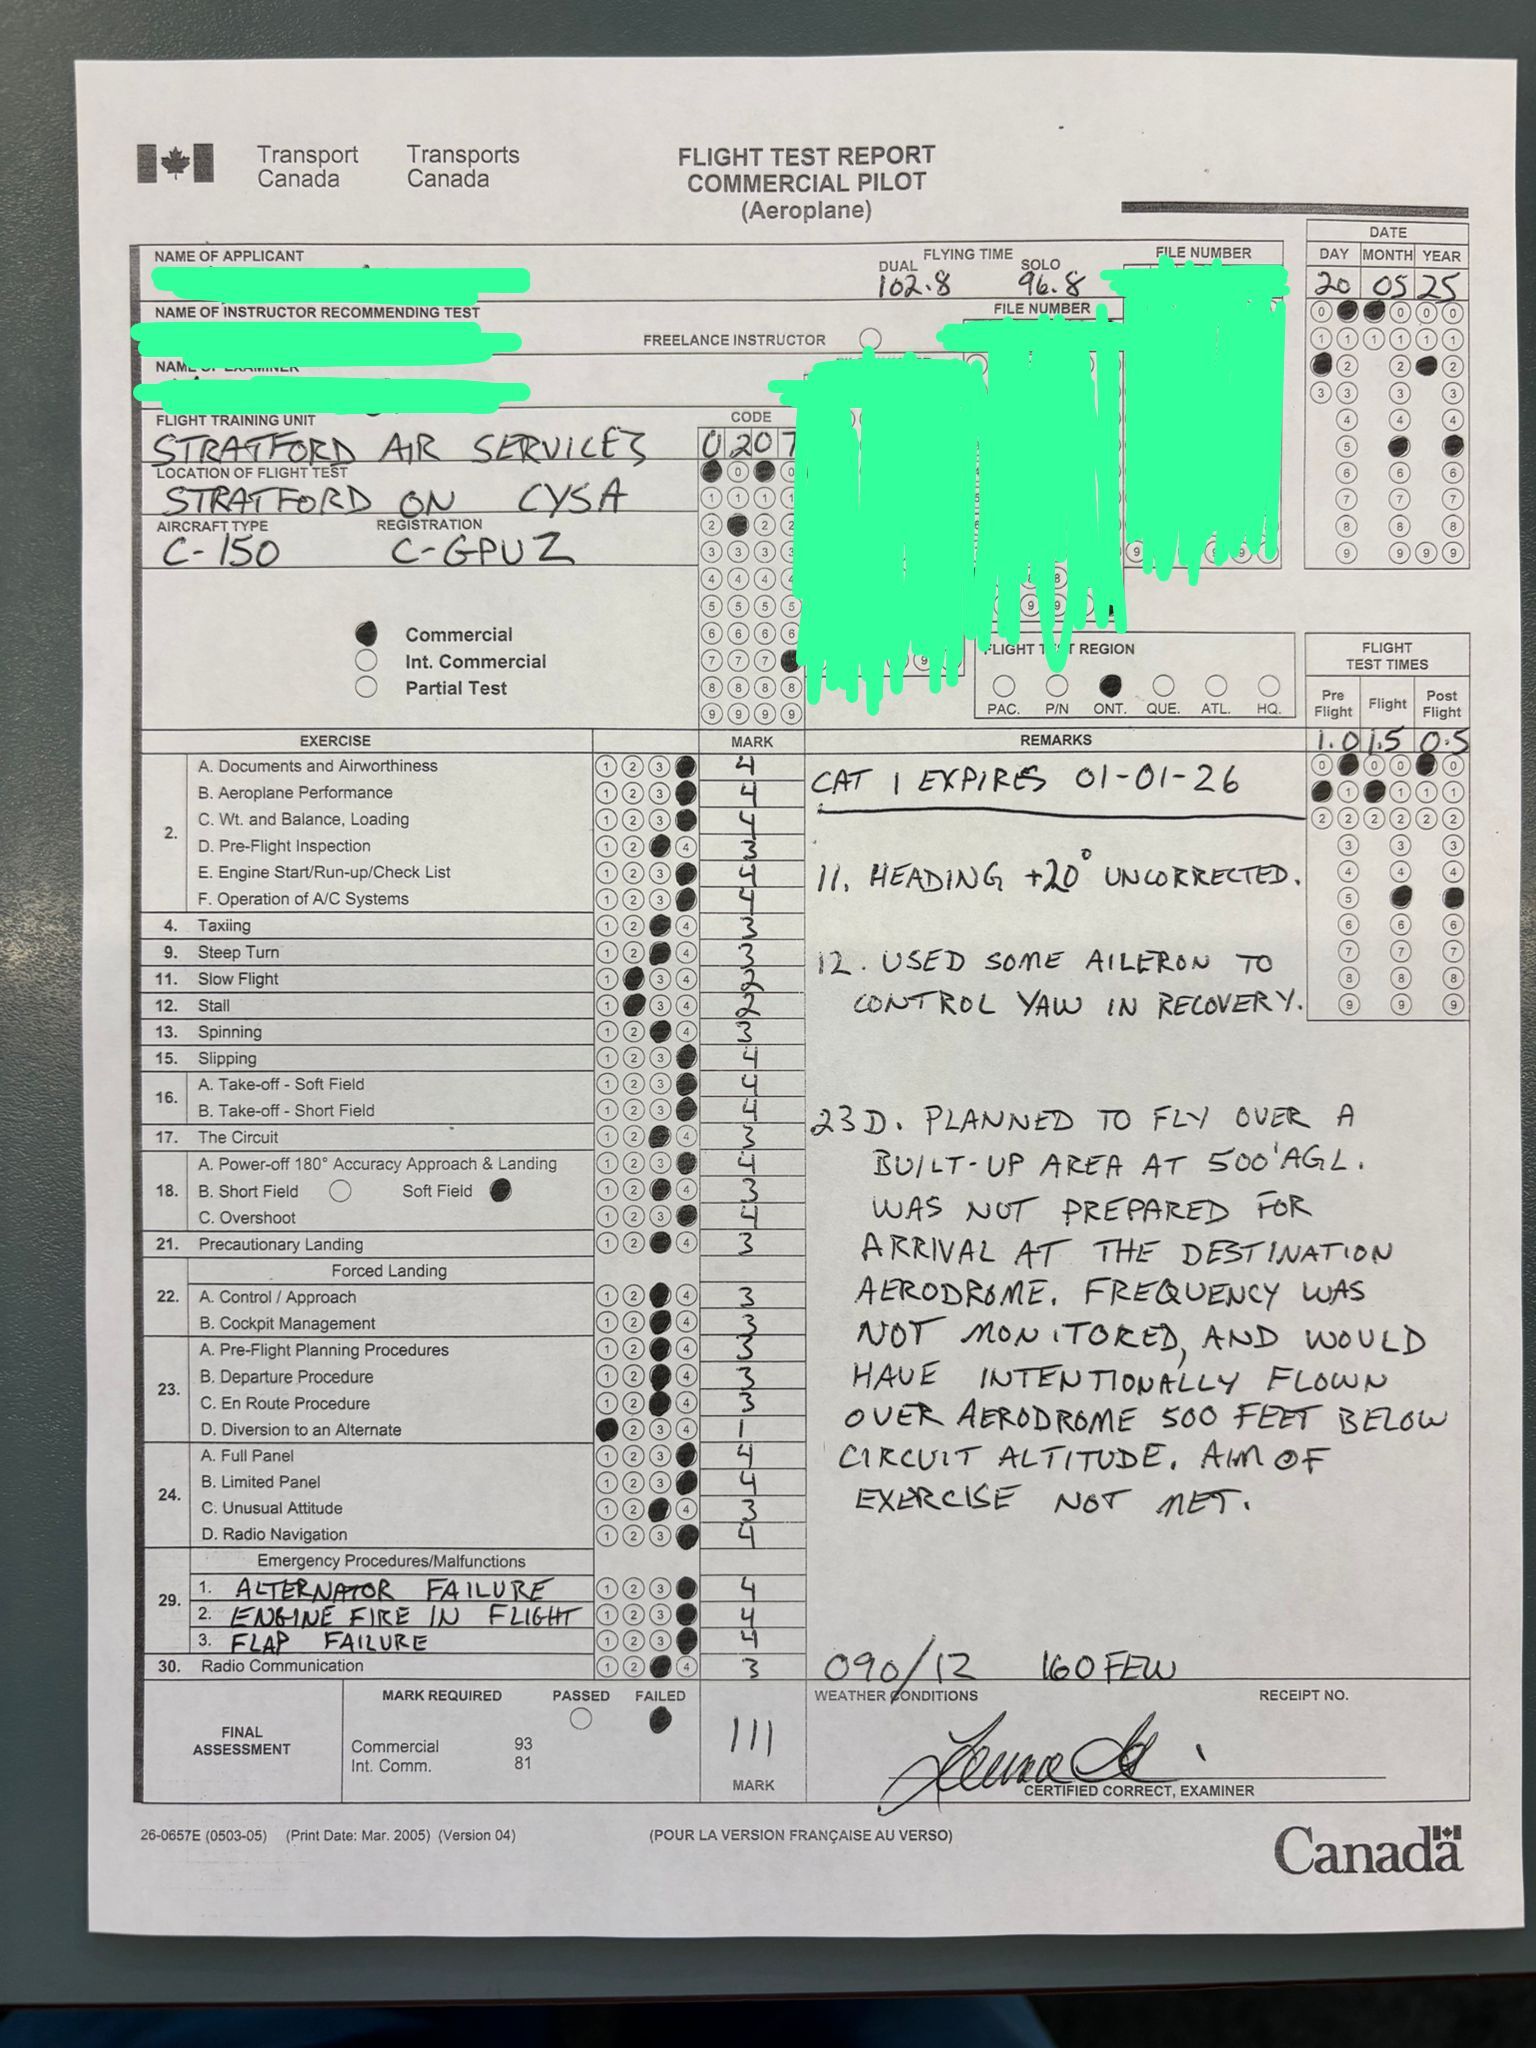 Transport Canada Transports Canada
FLIGHT TEST REPORT
COMMERCIAL PILOT
(Aeroplane)
DATE
DAY MONTH YEAR
20 05 25
NAME OF APPLICANT
FLYING TIME
DUAL SOLO
102.8 96.8
FILE NUMBER
NAME OF INSTRUCTOR RECOMMENDING TEST
FREELANCE INSTRUCTOR
FILE NUMBER
NAME OF EXAMINER
FLIGHT TRAINING UNIT
STRATFORD AIR SERVICES
CODE
0207
LOCATION OF FLIGHT TEST
STRATFORD ON CYSA
AIRCRAFT TYPE REGISTRATION
C-150 C-GPUZ
Commercial
Int. Commercial
Partial Test
FLIGHT TEST REGION
PAC. P/N ONT. QUE. ATL. HQ.
FLIGHT TEST TIMES
Pre Flight Flight Post Flight
1.0 1.5 0.5
EXERCISE MARK REMARKS
2.
A. Documents and Airworthiness 1 2 3 4
B. Aeroplane Performance 1 2 3 4
C. Wt. and Balance, Loading 1 2 3 4
D. Pre-Flight Inspection 1 2 4 3
E. Engine Start/Run-up/Check List 1 2 3 4
F. Operation of A/C Systems 1 2 3 4
4. Taxiing 1 2 4 3
9. Steep Turn 1 2 4 3
11. Slow Flight 1 3 4 2
12. Stall 1 3 4 2
13. Spinning 1 2 4 3
15. Slipping 1 2 3 4
16.
A. Take-off - Soft Field 1 2 3 4
B. Take-off - Short Field 1 2 3 4
17. The Circuit 1 2 4 3
18.
A. Power-off 180° Accuracy Approach & Landing 1 2 3 4
B. Short Field Soft Field 1 2 4 3
C. Overshoot 1 2 3 4
21. Precautionary Landing 1 2 4 3
22.
Forced Landing
A. Control / Approach 1 2 4 3
B. Cockpit Management 1 2 4 3
23.
A. Pre-Flight Planning Procedures 1 2 4 3
B. Departure Procedure 1 2 4 3
C. En Route Procedure 1 2 4 3
D. Diversion to an Alternate 2 3 4 1
24.
A. Full Panel 1 2 3 4
B. Limited Panel 1 2 3 4
C. Unusual Attitude 1 2 4 3
D. Radio Navigation 1 2 3 4
29.
Emergency Procedures/Malfunctions
1. ALTERNATOR FAILURE 1 2 3 4
2. ENGINE FIRE IN FLIGHT 1 2 3 4
3. FLAP FAILURE 1 2 3 4
30. Radio Communication 1 2 4 3
CAT 1 EXPIRES 01-01-26
11. HEADING +20° UNCORRECTED.
12. USED SOME AILERON TO
CONTROL YAW IN RECOVERY.
23D. PLANNED TO FLY OVER A
BUILT-UP AREA AT 500' AGL.
WAS NOT PREPARED FOR
ARRIVAL AT THE DESTINATION
AERODROME. FREQUENCY WAS
NOT MONITORED, AND WOULD
HAVE INTENTIONALLY FLOWN
OVER AERODROME 500 FEET BELOW
CIRCUIT ALTITUDE. AIM OF
EXERCISE NOT MET.
090/12 160FEW
WEATHER CONDITIONS RECEIPT NO.
FINAL ASSESSMENT
MARK REQUIRED PASSED FAILED
Commercial 93
Int. Comm. 81
111
MARK
CERTIFIED CORRECT, EXAMINER
26-0657E (0503-05) (Print Date: Mar. 2005) (Version 04)
(POUR LA VERSION FRANÇAISE AU VERSO)
Canada